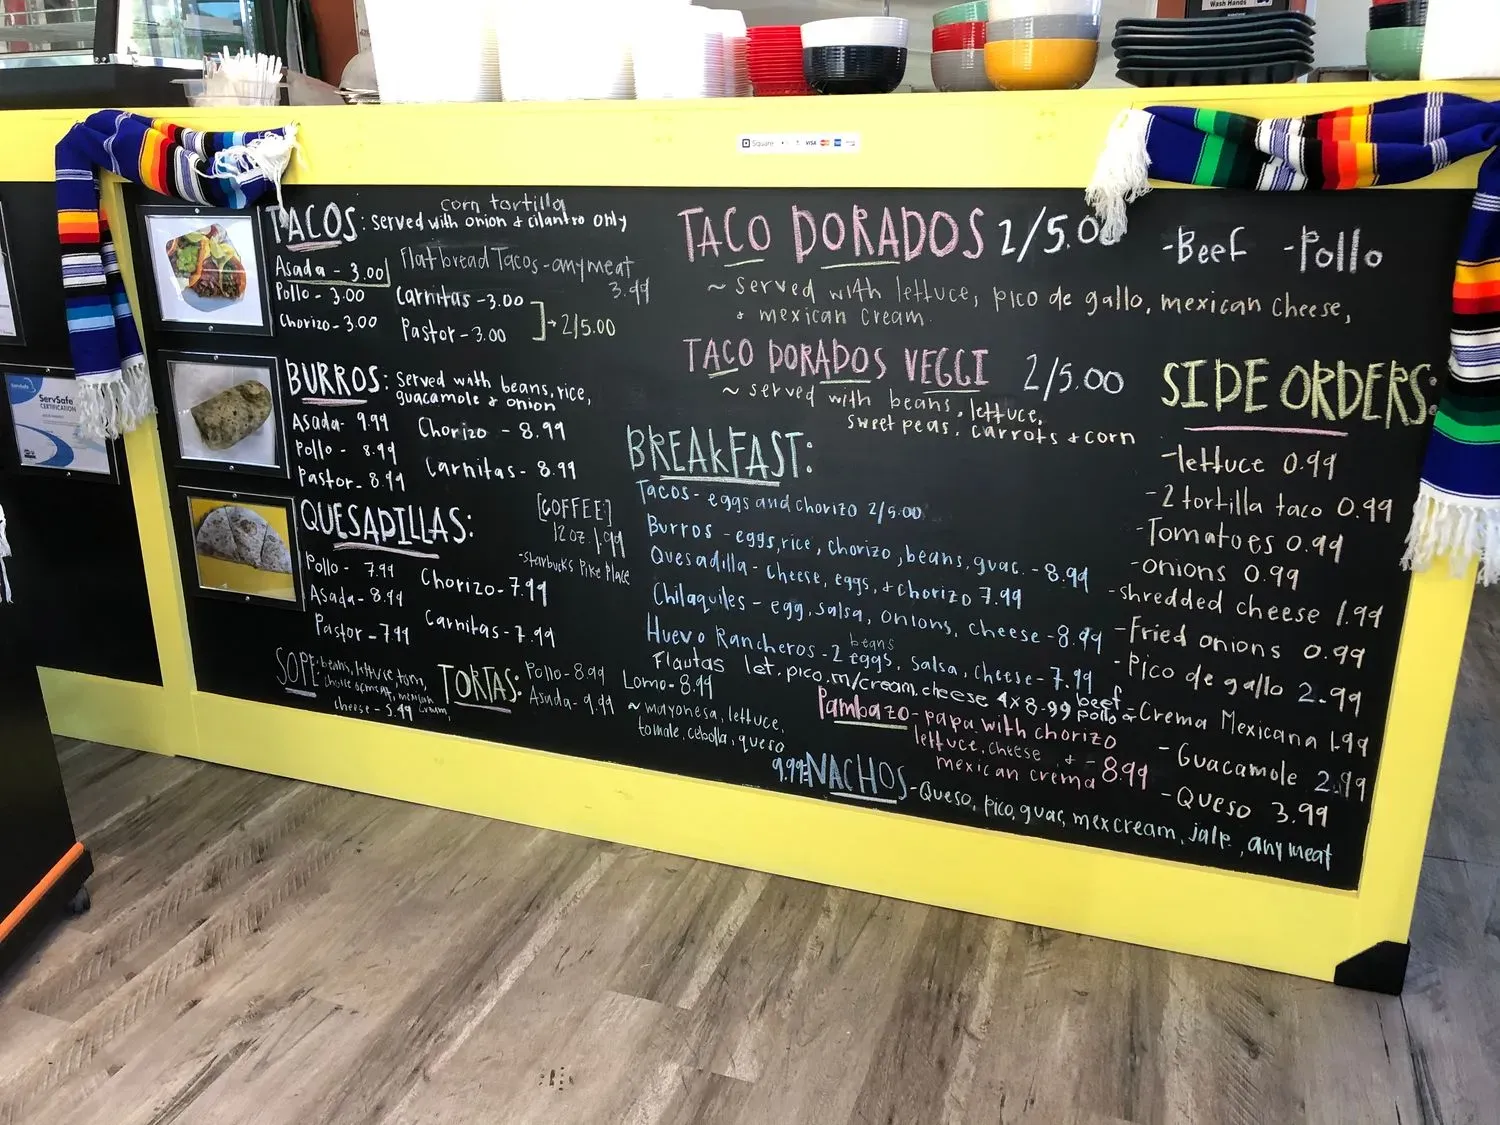 Wash Hands
Square VISA
ServSafe
ServSafe
CERTIFICATION
corn tortilla
TACOS: served with onion & cilantro only
Asada - 3.00
Flatbread Tacos - any meat
3.99
Pollo - 3.00
Carnitas - 3.00
Chorizo - 3.00
Pastor - 3.00
2/5.00
BURROS: Served with beans, rice,
guacamole & onion
Asada - 9.99
Chorizo - 8.99
Pollo - 8.99
Carnitas - 8.99
Pastor - 8.99
QUESADILLAS:
Pollo - 7.99
Chorizo - 7.99
Asada - 8.99
Carnitas - 7.99
Pastor - 7.99
[COFFEE]
12oz. 1.99
- Starbucks Pike Place
SOPE: beans, lettuce, tom,
mexican cream,
cheese - 5.99
TORTAS:
Pollo - 8.99
Lomo - 8.99
Asada - 9.99
~ mayonesa, lettuce,
tomate, cebolla, queso
TACO DORADOS 2/5.00
- Beef - Pollo
~ served with lettuce, pico de gallo, mexican cheese,
+ mexican cream
TACO DORADOS VEGGI 2/5.00
~ served with beans, lettuce,
sweet peas, carrots + corn
BREAKFAST:
Tacos - eggs and chorizo 2/5.00
Burros - eggs, rice, chorizo, beans, guac. - 8.99
Quesadilla - cheese, eggs, + chorizo 7.99
Chilaquiles - egg, salsa, onions, cheese - 8.99
beans
Huevo Rancheros - 2 eggs, salsa, cheese - 7.99
Flautas let. pico. m/cream. cheese 4x8.99 beef
pollo
Pambazo - papa with chorizo
lettuce, cheese +
mexican crema - 8.99
9.99 NACHOS - Queso, pico, guac, mex cream, jalp., any meat
SIDE ORDERS:
- lettuce 0.99
- 2 tortilla taco 0.99
- Tomatoes 0.99
- onions 0.99
- shredded cheese 1.99
- Fried onions 0.99
- Pico de gallo 2.99
- Crema Mexicana 1.99
- Guacamole 2.99
- Queso 3.99